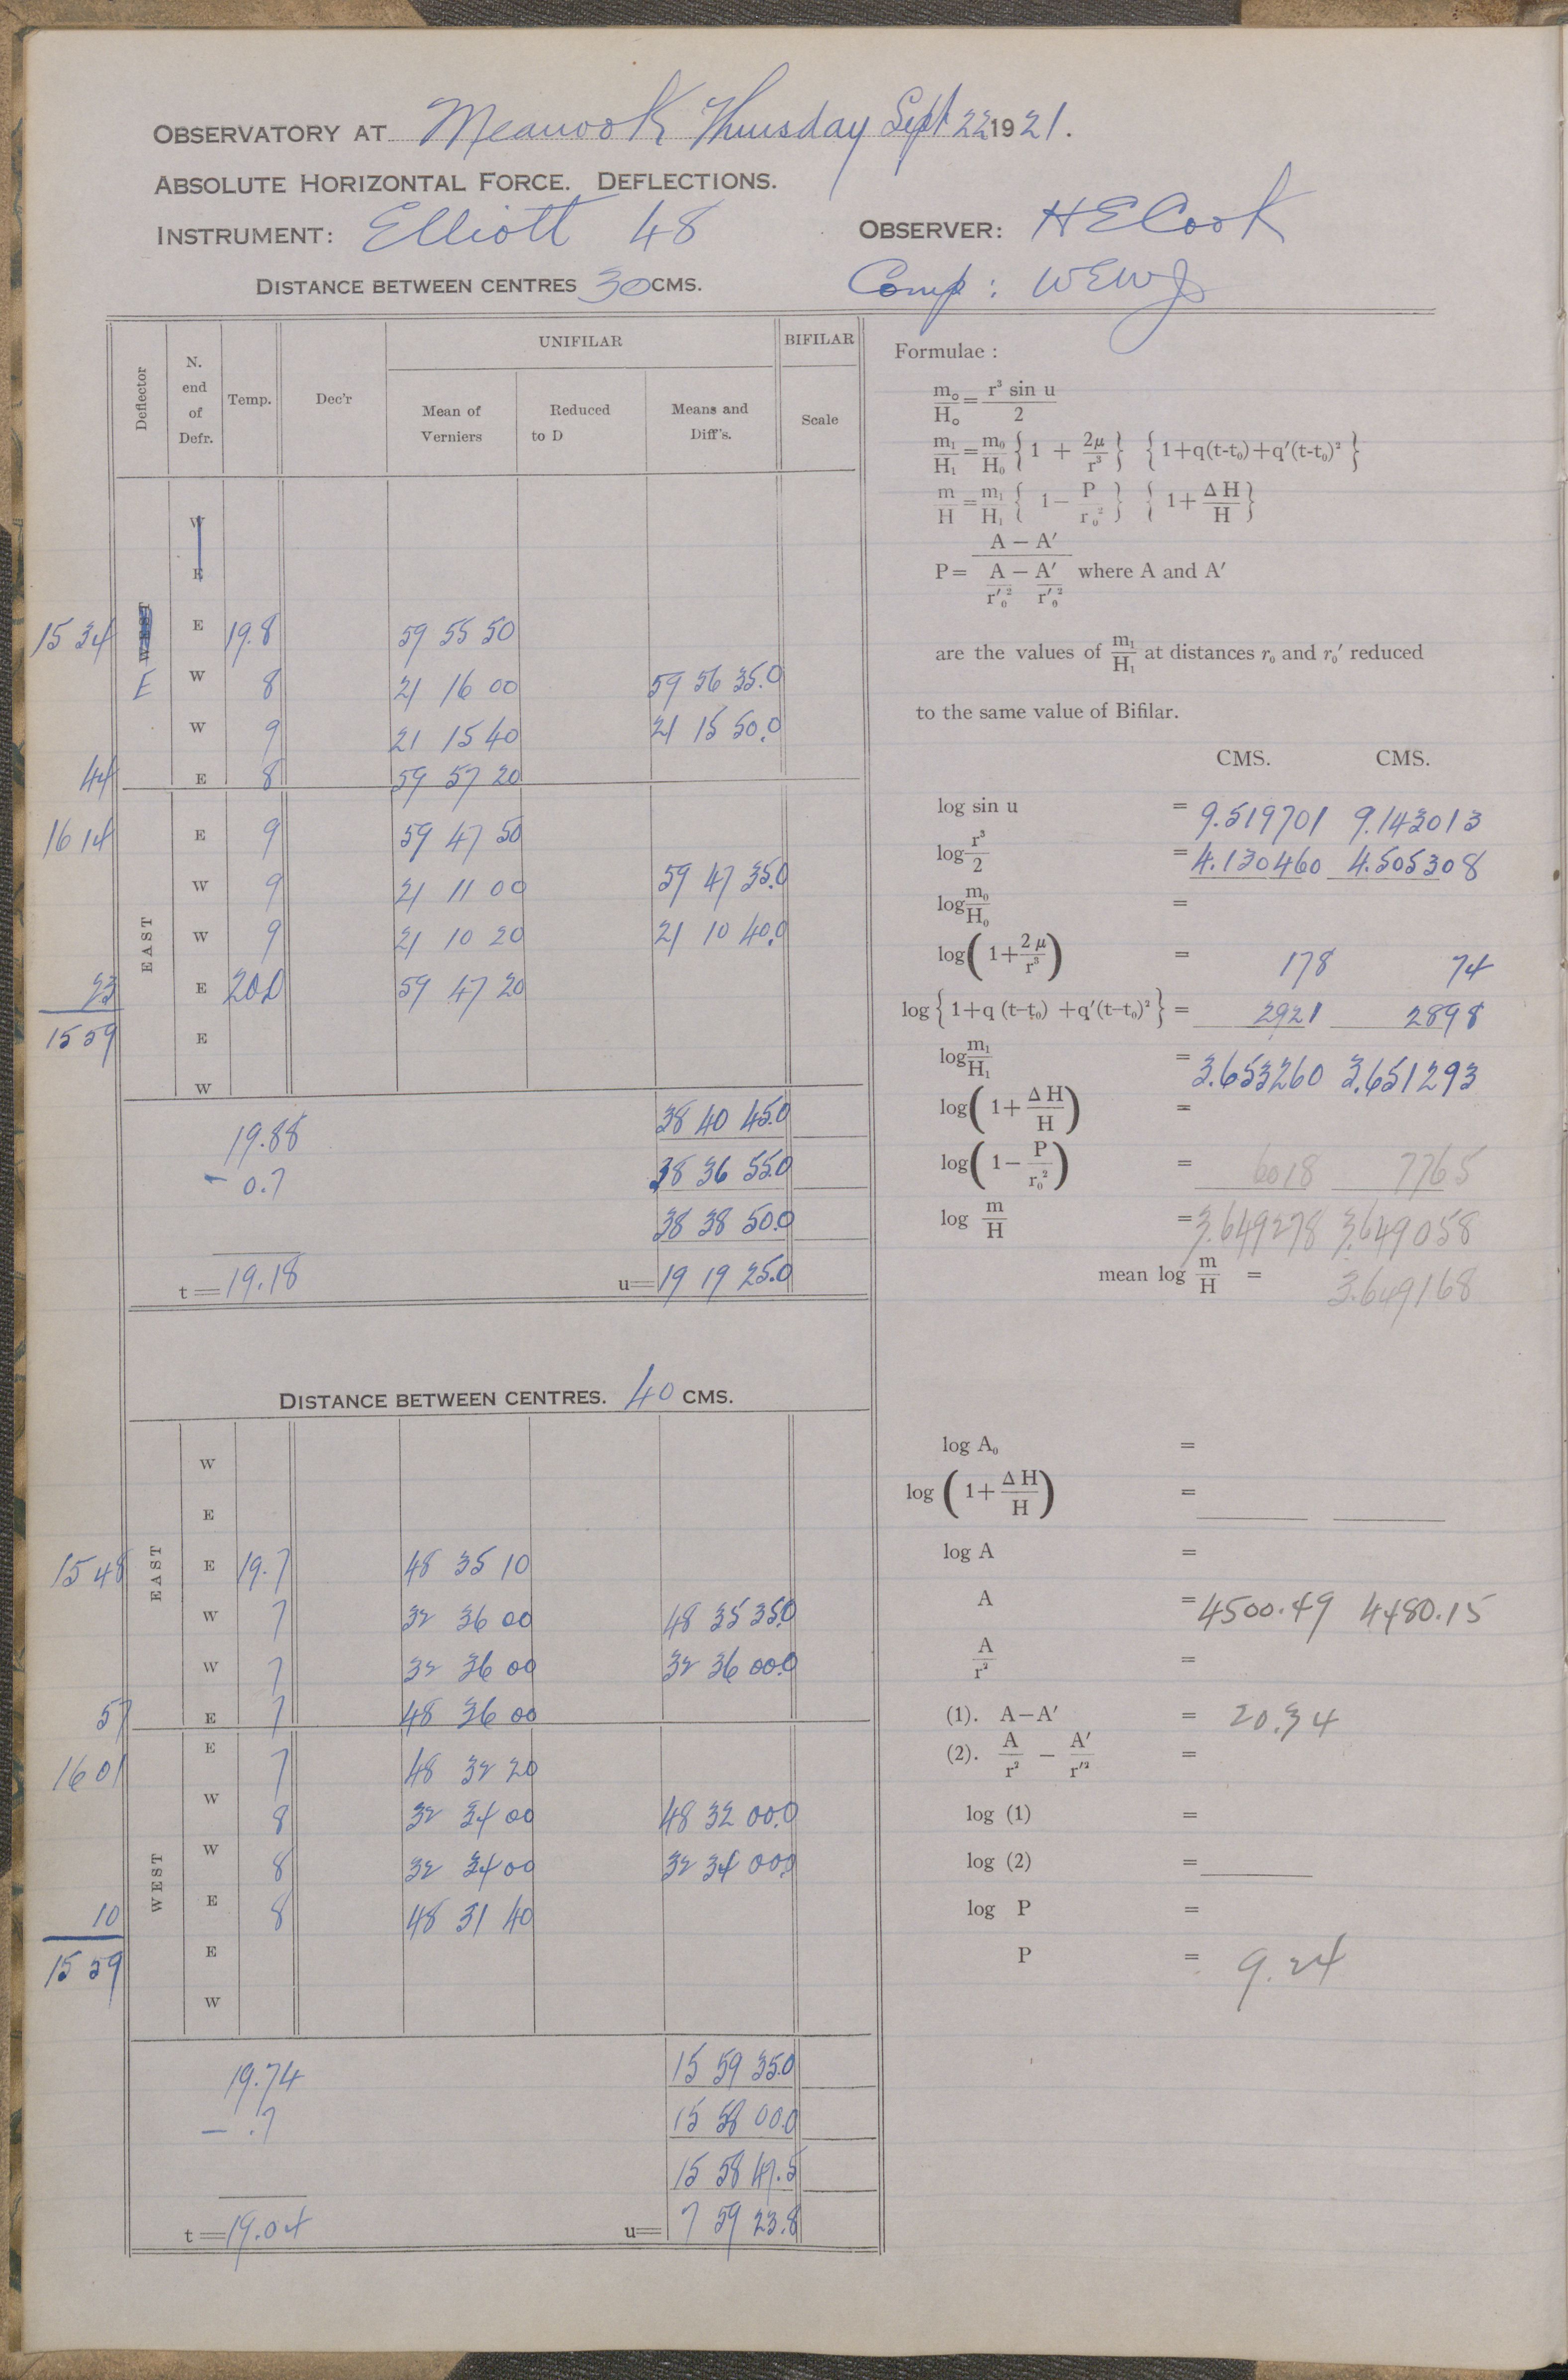 OBSERVATORY AT Meanook Thursday Sept 22 1921.
ABSOLUTE HORIZONTAL FORCE. DEFLECTIONS.
INSTRUMENT: Elliott 48 OBSERVER: H E Cook
DISTANCE BETWEEN CENTRES 30 CMS. Comp: WEWJ
Deflector N. end of Defr. Temp. Dec'r UNIFILAR BIFILAR
Mean of Verniers Reduced to D Means and Diff's. Scale
W
E
15 34 WEST E 19.8 59 55 50
E W 8 21 16 00 59 56 35.0
W 9 21 15 40 21 15 50.0
44 E 8 59 57 20
16 14 E 9 59 47 50
W 9 21 11 00 59 47 35.0
EAST W 9 21 10 20 21 10 40.0
23 E 20.0 59 47 20
15 59 E
W
19.88 38 40 45.0
- 0.7 38 36 55.0
38 38 50.0
t = 19.18 u = 19 19 25.0
DISTANCE BETWEEN CENTRES. 40 CMS.
W
E
15 48 EAST E 19.7 48 35 10
W 7 32 36 00 48 35 35.0
W 7 32 36 00 32 36 00.0
57 E 7 48 36 00
16 01 E 7 48 32 20
W 8 32 34 00 48 32 00.0
WEST W 8 32 34 00 32 34 00.0
10 E 8 48 31 40
15 59 E
W
19.74 15 59 35.0
- .7 15 58 00.0
15 58 47.5
t = 19.04 u = 7 59 23.8
Formulae :
m₀/H₀ = r³ sin u / 2
m₁/H₁ = m₀/H₀ { 1 + 2μ/r³ } { 1+q(t-t₀)+q′(t-t₀)² }
m/H = m₁/H₁ { 1 − P/r₀² } { 1+ Δ H/H }
P = A − A′ / A/r′₀² − A′/r′₀² where A and A′
are the values of m₁/H₁ at distances r₀ and r₀′ reduced
to the same value of Bifilar.
CMS. CMS.
log sin u = 9.519701 9.143013
log r³/2 = 4.130460 4.505308
log m₀/H₀ =
log ( 1+ 2 μ/r³ ) = 178 74
log { 1+q (t−t₀) +q′(t−t₀)² } = 2921 2898
log m₁/H₁ = 3.653260 3.651293
log ( 1+ Δ H/H ) =
log ( 1− P/r₀² ) = 6018 7765
log m/H = 3.649278 3.649058
mean log m/H = 3.649168
log A₀ =
log ( 1+ Δ H/H ) =
log A =
A = 4500.49 4480.15
A/r² =
(1). A−A′ = 20.34
(2). A/r² − A′/r′² =
log (1) =
log (2) =
log P =
P = 9.24